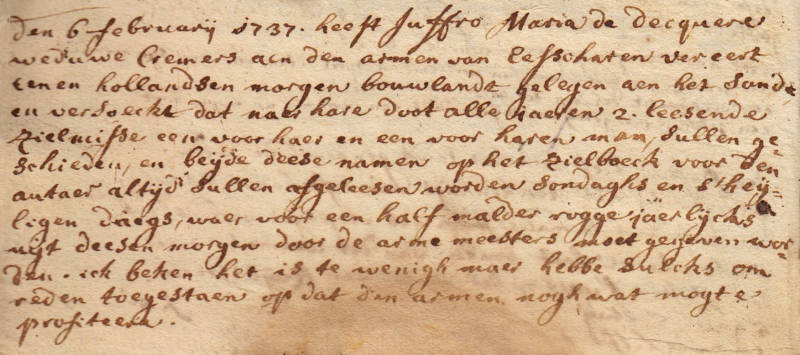 den 6 februarij 1737. heeft Juffro Maria de Decquere
weduwe Cremers aen den armen van Lesscharen vereert
eenen hollandsen morgen bouwlandt gelegen aen het Sondt
en versoeckt dat naer hare doot alle jaeren 2. leesende
zielmisse een voor haer en een voor haren man, sullen ge-
schieden, en beijde deese namen op het zielboeck voor den
autaer altijdt sullen afgeleesen worden sondaghs en s'heij-
ligen daegs, waer voor een half malder rogge jaerlijcks
uijt deesen morgen door de arme meesters moet gegeven wor-
den. ick beken het is te wenigh maer hebbe sulcks om
reden toegestaen op dat den armen nogh wat mogte
profiteern.